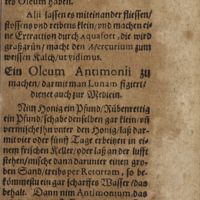 tes Oleum haben.
Als lassen es miteinander fliessen/
stossens und reibens klein/und machen ei-
ne Extraction durch Aquafort, die wird
graßgrün/macht den Mercurium zum
weissen Kalch/ut vidimus.
Ein Oleum Antimonii zu
machen/darmit man Lunam figiert/
dienet auch zur Medicin.
Nim Honig ein Pfund/Rübenrettig
ein Pfund/schabe denselben gar klein/uñ
vermische ihn unter den Honig/laß dar-
mit vier oder fünff Tage erbeizen in ei-
nem frischen Keller/oder laß an der lufft
stehen/mische dann darunter einen gro-
ben Sand/treibs per Retortam, so be-
kömmestu ein gar scharffes Wasser/das
behalt. Dann nim Antimonium, das